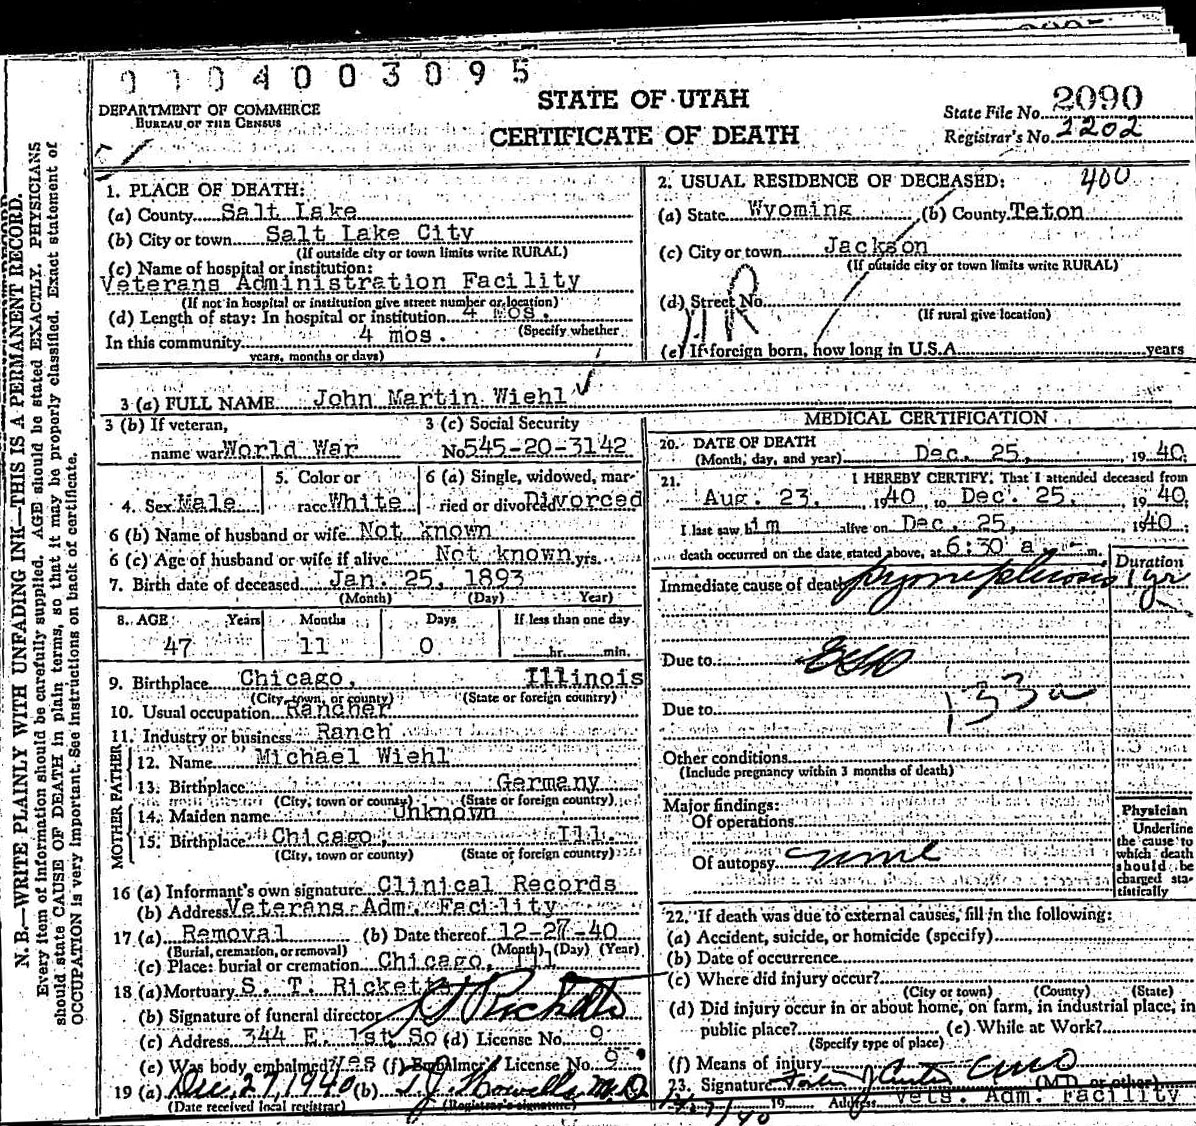 0104003095
STATE OF UTAH
CERTIFICATE OF DEATH
DEPARTMENT OF COMMERCE
BUREAU OF THE CENSUS
State File No. 2090
Registrar's No. 2202
N. B.—WRITE PLAINLY WITH UNFADING INK—THIS IS A PERMANENT RECORD.
Every item of information should be carefully supplied. AGE should be stated EXACTLY. PHYSICIANS
should state CAUSE OF DEATH in plain terms, so that it may be properly classified. Exact statement of
OCCUPATION is very important. See instructions on back of certificate.
1. PLACE OF DEATH:
(a) County Salt Lake
(b) City or town Salt Lake City
(If outside city or town limits write RURAL)
(c) Name of hospital or institution:
Veterans Administration Facility
(If not in hospital or institution give street number or location)
(d) Length of stay: In hospital or institution 4 mos.
In this community 4 mos. (Specify whether
years, months or days)
2. USUAL RESIDENCE OF DECEASED: 400
(a) State Wyoming (b) County Teton
(c) City or town Jackson
(If outside city or town limits write RURAL)
(d) Street No.
(If rural give location)
(e) If foreign born, how long in U.S.A. years
3 (a) FULL NAME John Martin Wiehl
3 (b) If veteran, 3 (c) Social Security
name war World War No 545-20-3142
4. Sex Male 5. Color or race White 6 (a) Single, widowed, married or divorced Divorced
6 (b) Name of husband or wife Not known
6 (c) Age of husband or wife if alive Not known yrs.
7. Birth date of deceased Jan. 25, 1893
(Month) (Day) Year)
8. AGE Years Months Days If less than one day
47 11 0 hr. min.
9. Birthplace Chicago, Illinois
(City, town, or county) (State or foreign country)
10. Usual occupation Rancher
11. Industry or business Ranch
FATHER
12. Name Michael Wiehl
13. Birthplace Germany
(City, town or county) (State or foreign country)
MOTHER
14. Maiden name Unknown
15. Birthplace Chicago, Ill.
(City, town or county) (State or foreign country)
16 (a) Informant's own signature Clinical Records
(b) Address Veterans Adm. Facility
17 (a) Removal (b) Date thereof 12-27-40
(Burial, cremation, or removal) (Month) (Day) (Year)
(c) Place: burial or cremation Chicago, Ill
18 (a) Mortuary S. T. Ricketts
(b) Signature of funeral director S T Ricketts
(c) Address 344 E. 1st So (d) License No. 9
(e) Was body embalmed? Yes (f) Embalmer's License No. 9
19 (a) Dec. 27, 1940 (b) T. J. Howells M.D.
(Date received local registrar) (Registrar's signature)
MEDICAL CERTIFICATION
20. DATE OF DEATH
(Month, day, and year) Dec. 25, 1940.
21. I HEREBY CERTIFY: That I attended deceased from
Aug. 23, 1940 to Dec. 25, 1940,
I last saw him alive on Dec. 25, 1940.
death occurred on the date stated above, at 6:30 a - m.
Duration
Immediate cause of death pyonephrosis 1 yr
Due to
Due to 133a
Other conditions
(Include pregnancy within 3 months of death)
Major findings:
Of operations
Of autopsy none
Physician
Underline
the cause to
which death
should be
charged sta-
tistically
22. If death was due to external causes, fill in the following:
(a) Accident, suicide, or homicide (specify)
(b) Date of occurrence
(c) Where did injury occur?
(City or town) (County) (State)
(d) Did injury occur in or about home, on farm, in industrial place, in
public place? (e) While at Work?
(Specify type of place)
(f) Means of injury
23. Signature (MD. or other)
19 Address Vets. Adm. Facility